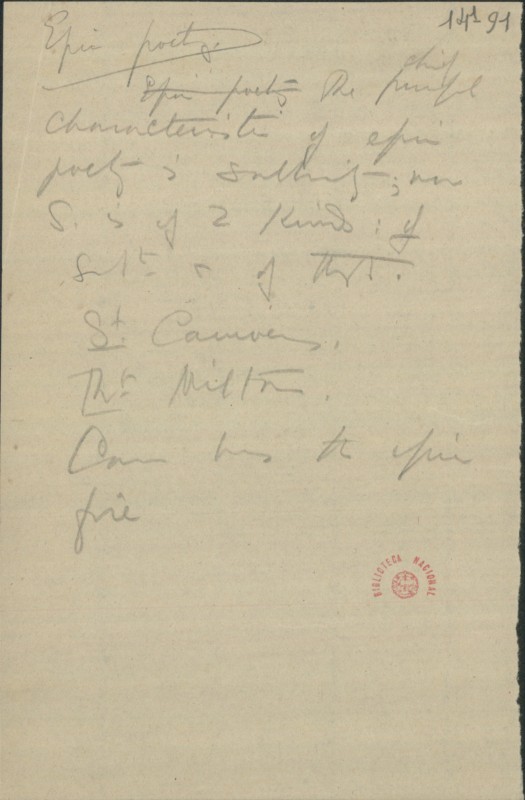 14¹-91
Epic poetry.
Epic poetry The chief
characteristic of epic
poetry is sublimity; now
S. is of 2 kinds: of
& of tht.
St. Camoens.
Tht Milton.
Cam has the epic
fire
BIBLIOTECA NACIONAL